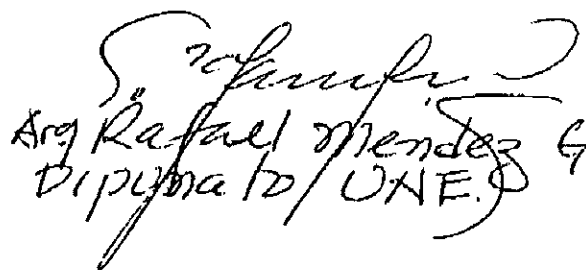 Arq Rafael Mendez G
Diputado / UNE.